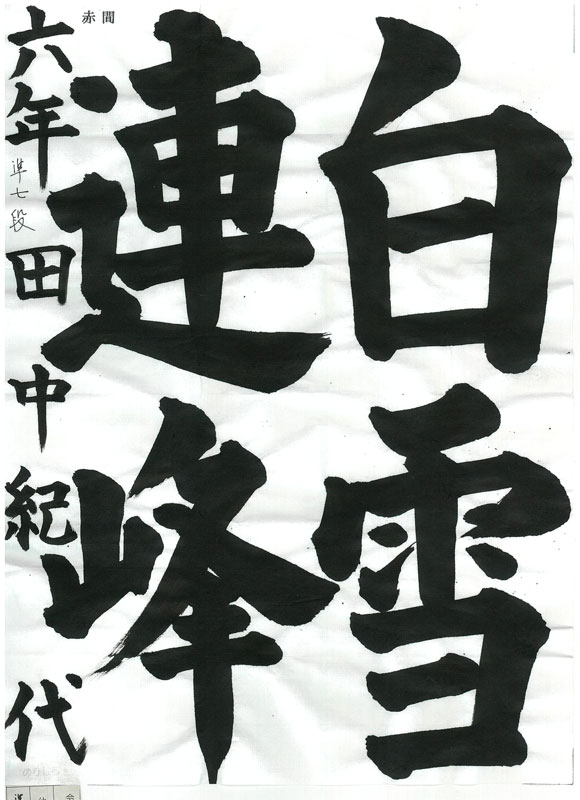 白雪
連峰
六年 準七段 田中紀代
赤間